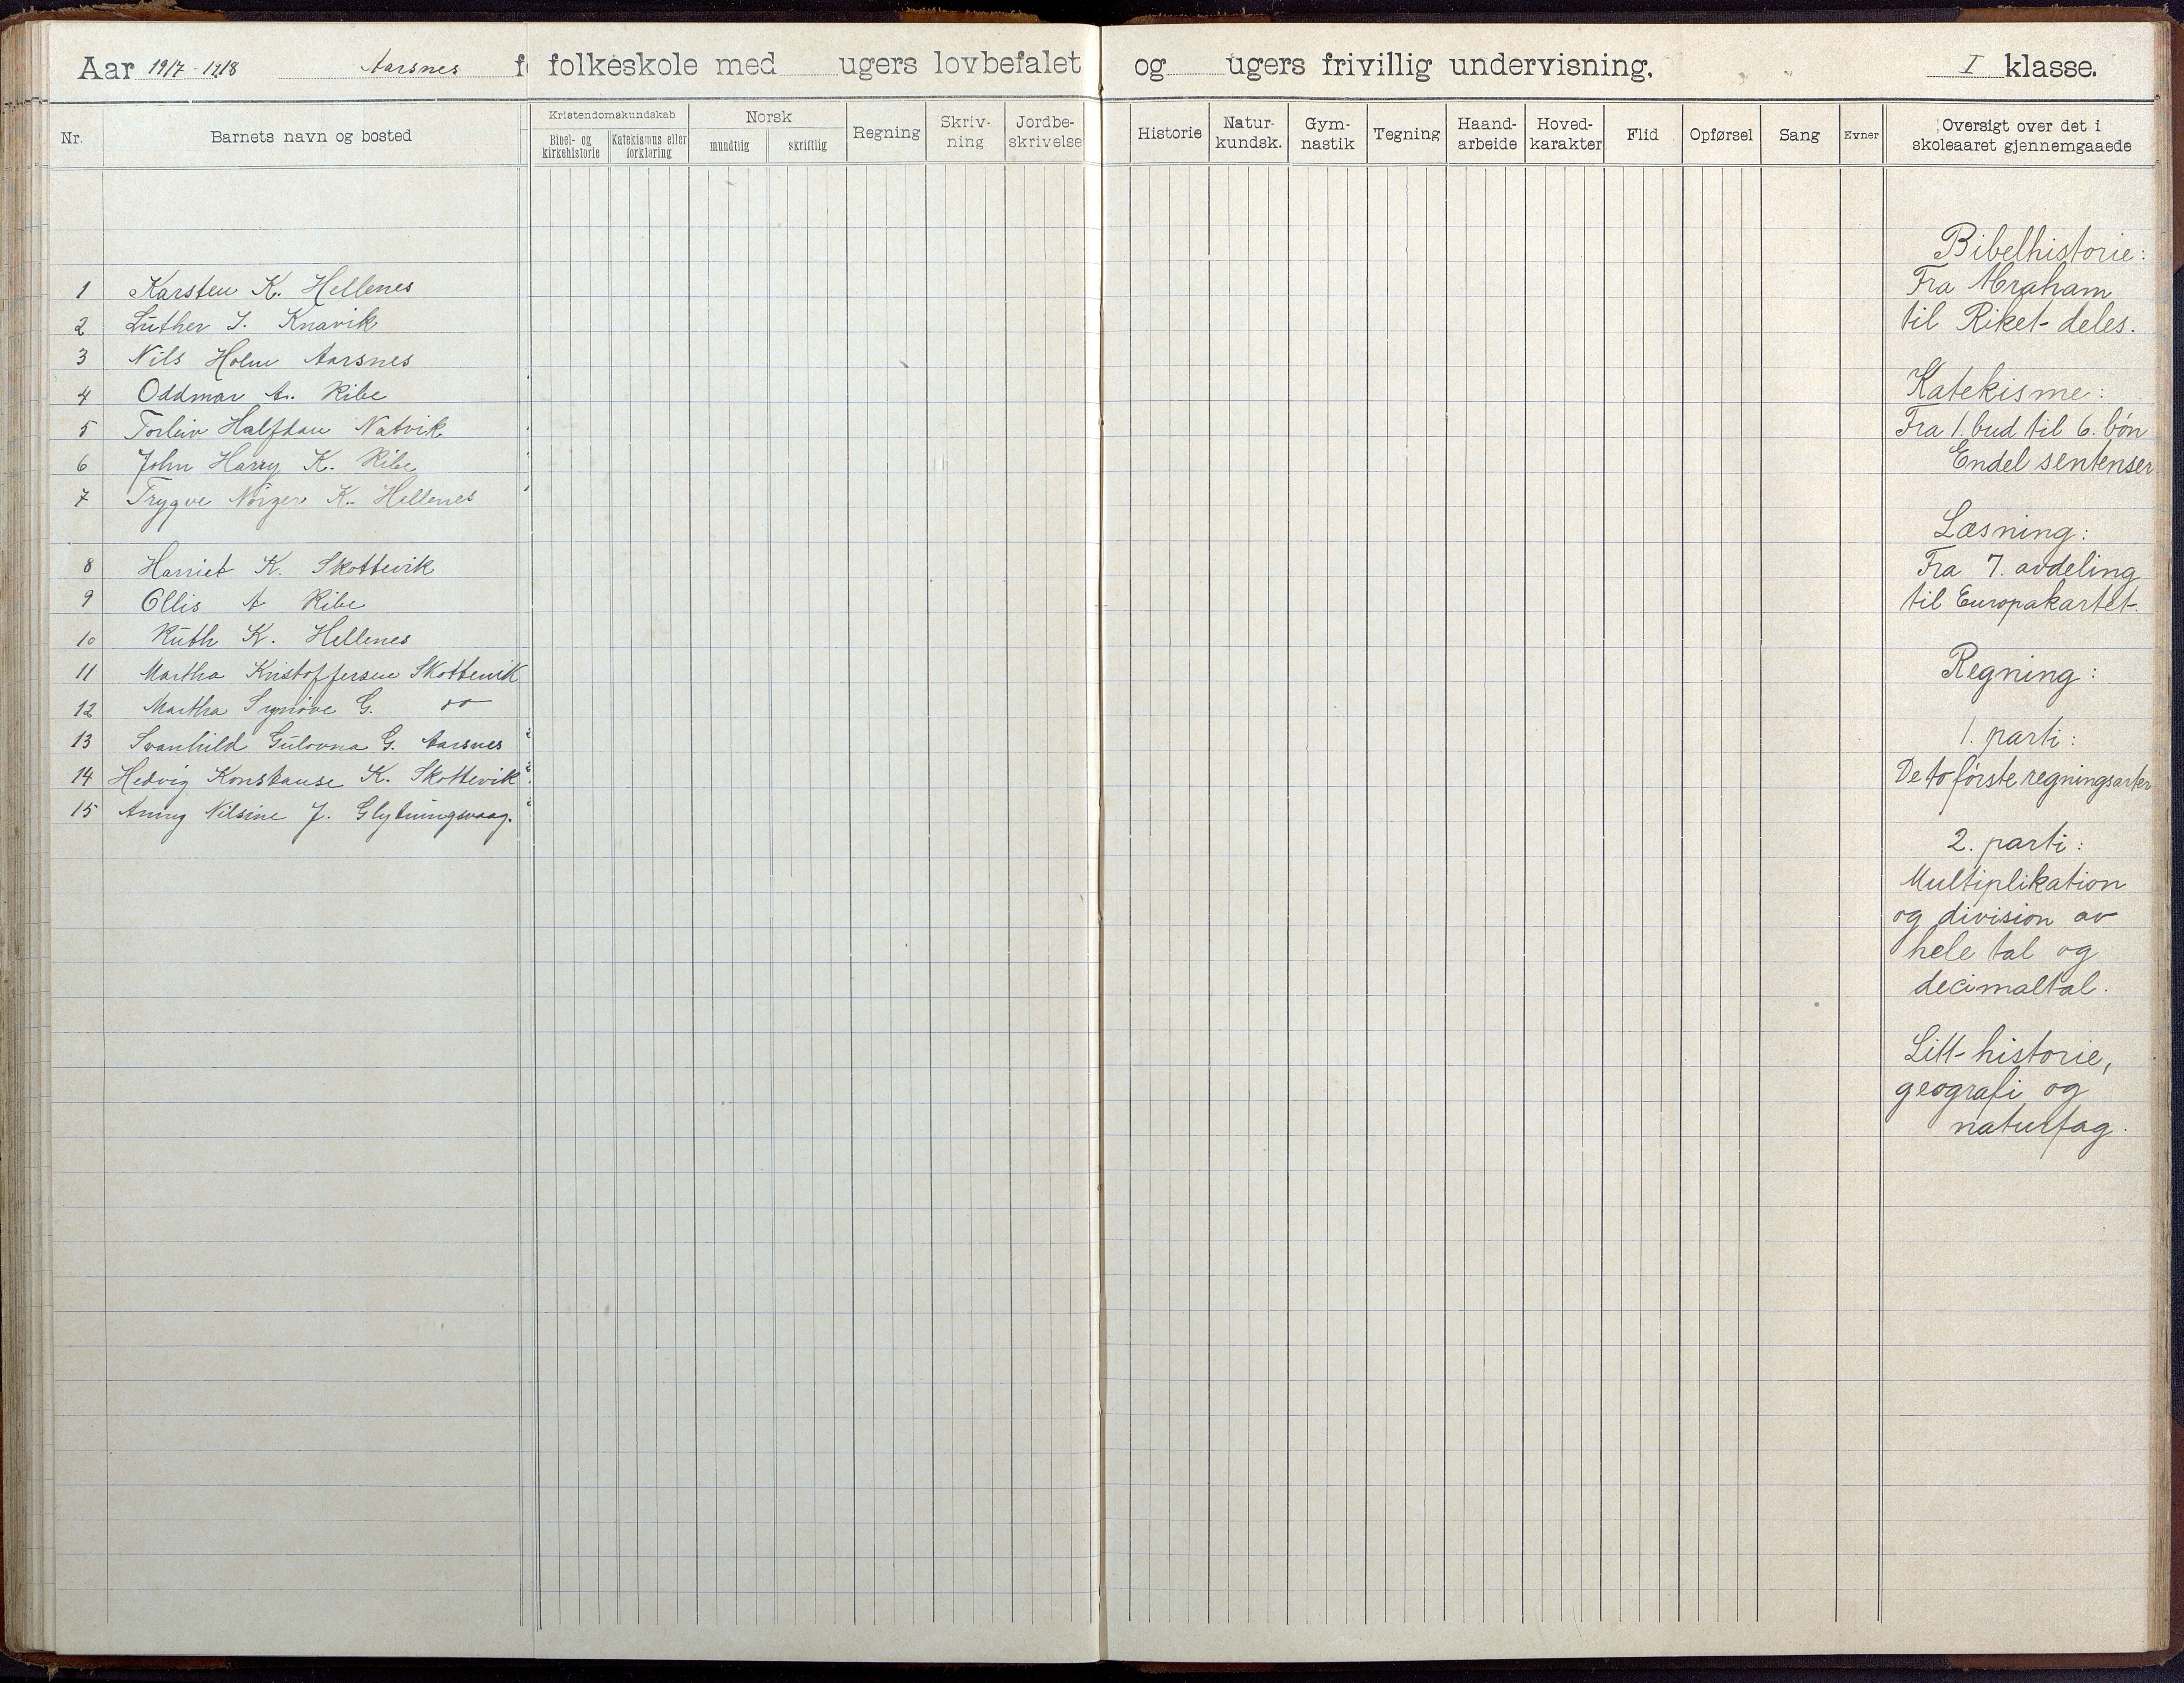 Aar 1917-1918 Aarsnes f folkeskole med ugers lovbefalet og ugers frivillig undervisning. I klasse.
Nr. Barnets navn og bosted Kristendomskundskab Bibel- og kirkehistorie Katekismus eller forklaring Norsk mundtlig skriftlig Regning Skriv-ning Jordbe-skrivelse Historie Natur-kundsk. Gym-nastik Tegning Haand-arbeide Hoved-karakter Flid Opførsel Sang Evner Oversigt over det i skoleaaret gjennemgaaede
1 Karsten K. Hellenes
2 Luther J. Knavik
3 Nils Holm Aarsnes
4 Oddmar A. Ribe
5 Torleiv Halfdan Natvik
6 John Harry K. Ribe
7 Trygve K. Hellenes
8 Harriet K. Skottevik
9 Ellis A Ribe
10 Ruth K. Hellenes
11 Martha Kristoffersen Skottevik
12 Martha Synnøve G.
13 Svanhild Gulovna G. Aarsnes
14 Hedvig Konstanse K. Skottevik
15 Anny Nilsine J. Glytningsvaag.
Bibelhistorie:
Fra Abraham
til Riket deles.
Katekisme:
Fra 1. bud til 6. bøn
Endel sentenser
Læsning:
Fra 7. avdeling
til Europakartet.
Regning:
1. parti:
De to første regningsarter
2. parti:
Multiplikation
og division av
hele tal og
decimaltal.
Litt historie,
geografi og
naturfag.